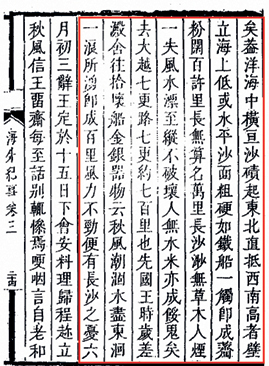 矣蓋洋海中橫亘沙磧起東北直抵西南高者壁
立海上低或水平沙面粗硬如鐵船一觸即成虀
粉闊百許里長無算名萬里長沙渺無草木人煙
一失風水漂至縱不破壞人無水米亦成餒鬼矣
去大越七更路七更約七百里也先國王時歲差
澱舍往拾壞船金銀器物云秋風潮涸水盡東洄
一浪所湧即成百里風力不勁便有長沙之憂六
月初三辭王定於十五日下會安料理歸程趂立
秋風信王留齋每至話別輒慘焉哽咽言自老和
海外紀事卷三